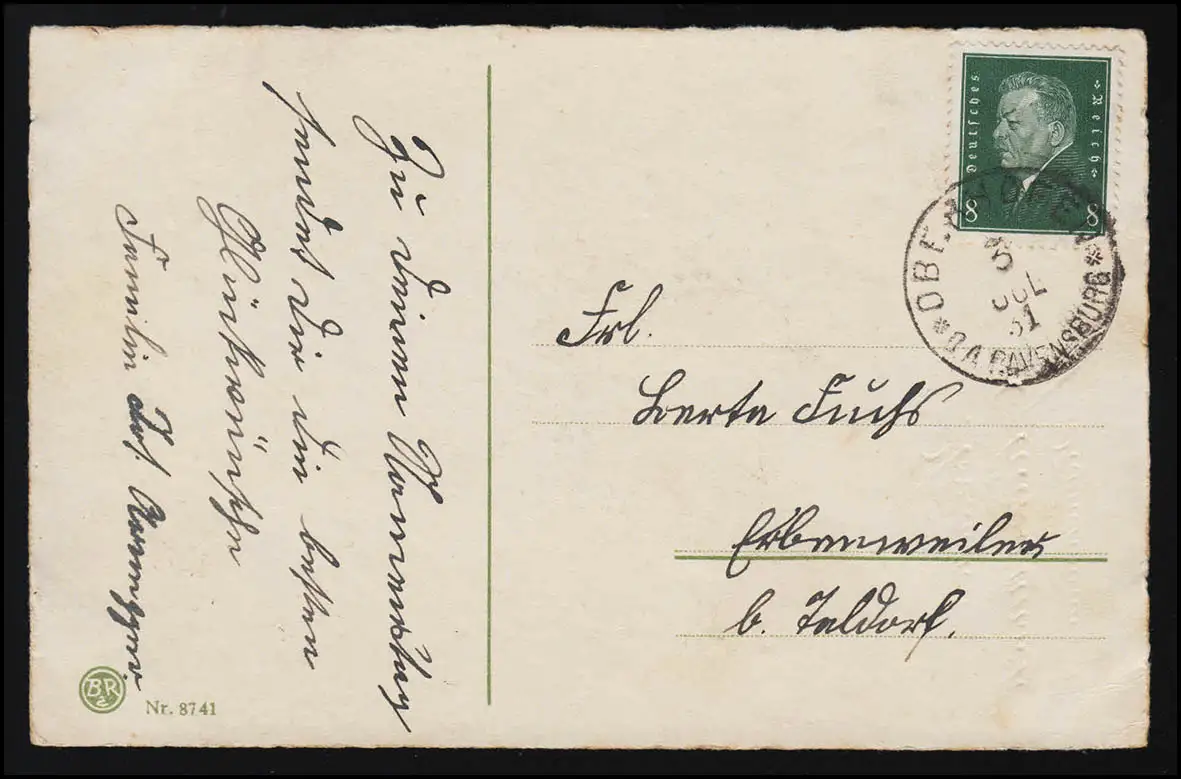 Zu deinem Namenstag
sendet dir die besten
Glückwünsche
Familie Jos.
BR
Nr. 8741
Deutsches Reich
8 8
3
JUL
31
O.A. RAVENSBURG
Frl.
Berta Fuchs
Erbenweiler
b. Taldorf.